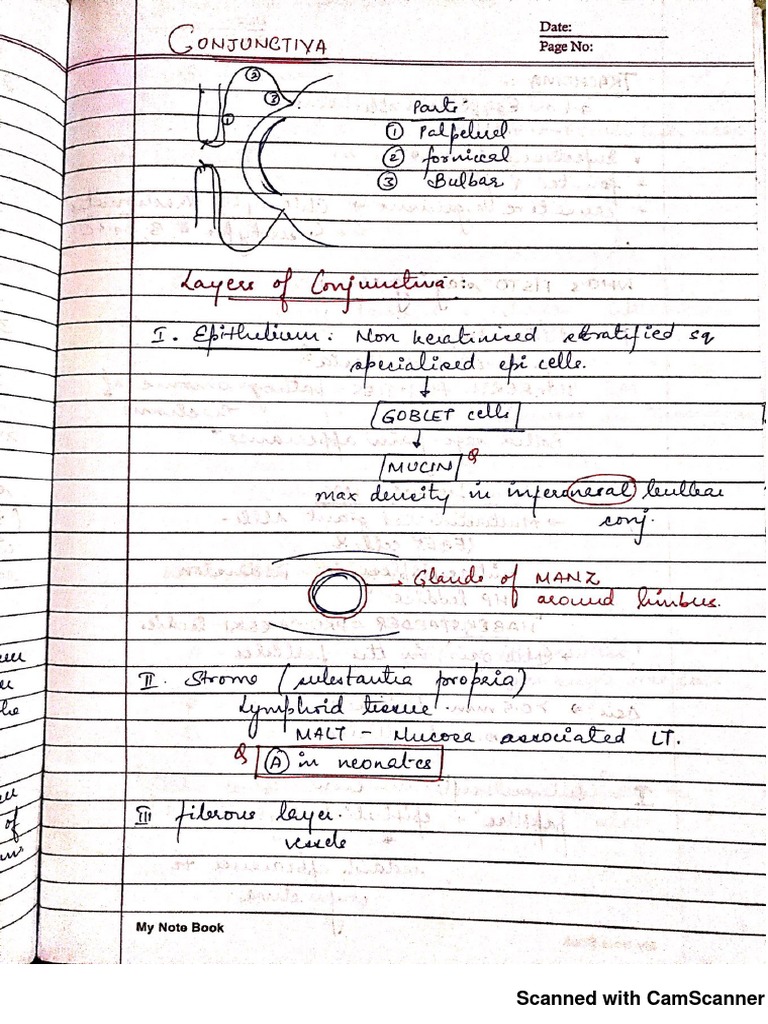 CONJUNCTIVA
Date:
Page No:
②
③
①
Parts
① Palpebral
② fornical
③ Bulbar
Layers of Conjunctiva:
I. Epithelium: Non keratinised stratified sq
specialised epi cells.
↓
GOBLET cells
↓
MUCIN Q
max density in inferonasal bulbar
conj.
Glands of MANZ
around limbus.
II. Stroma (substantia propria)
Lymphoid tissue
MALT - Mucosa associated LT.
Q Ⓐ in neonates
III fibrous layer.
vessels
of
My Note Book
Scanned with CamScanner